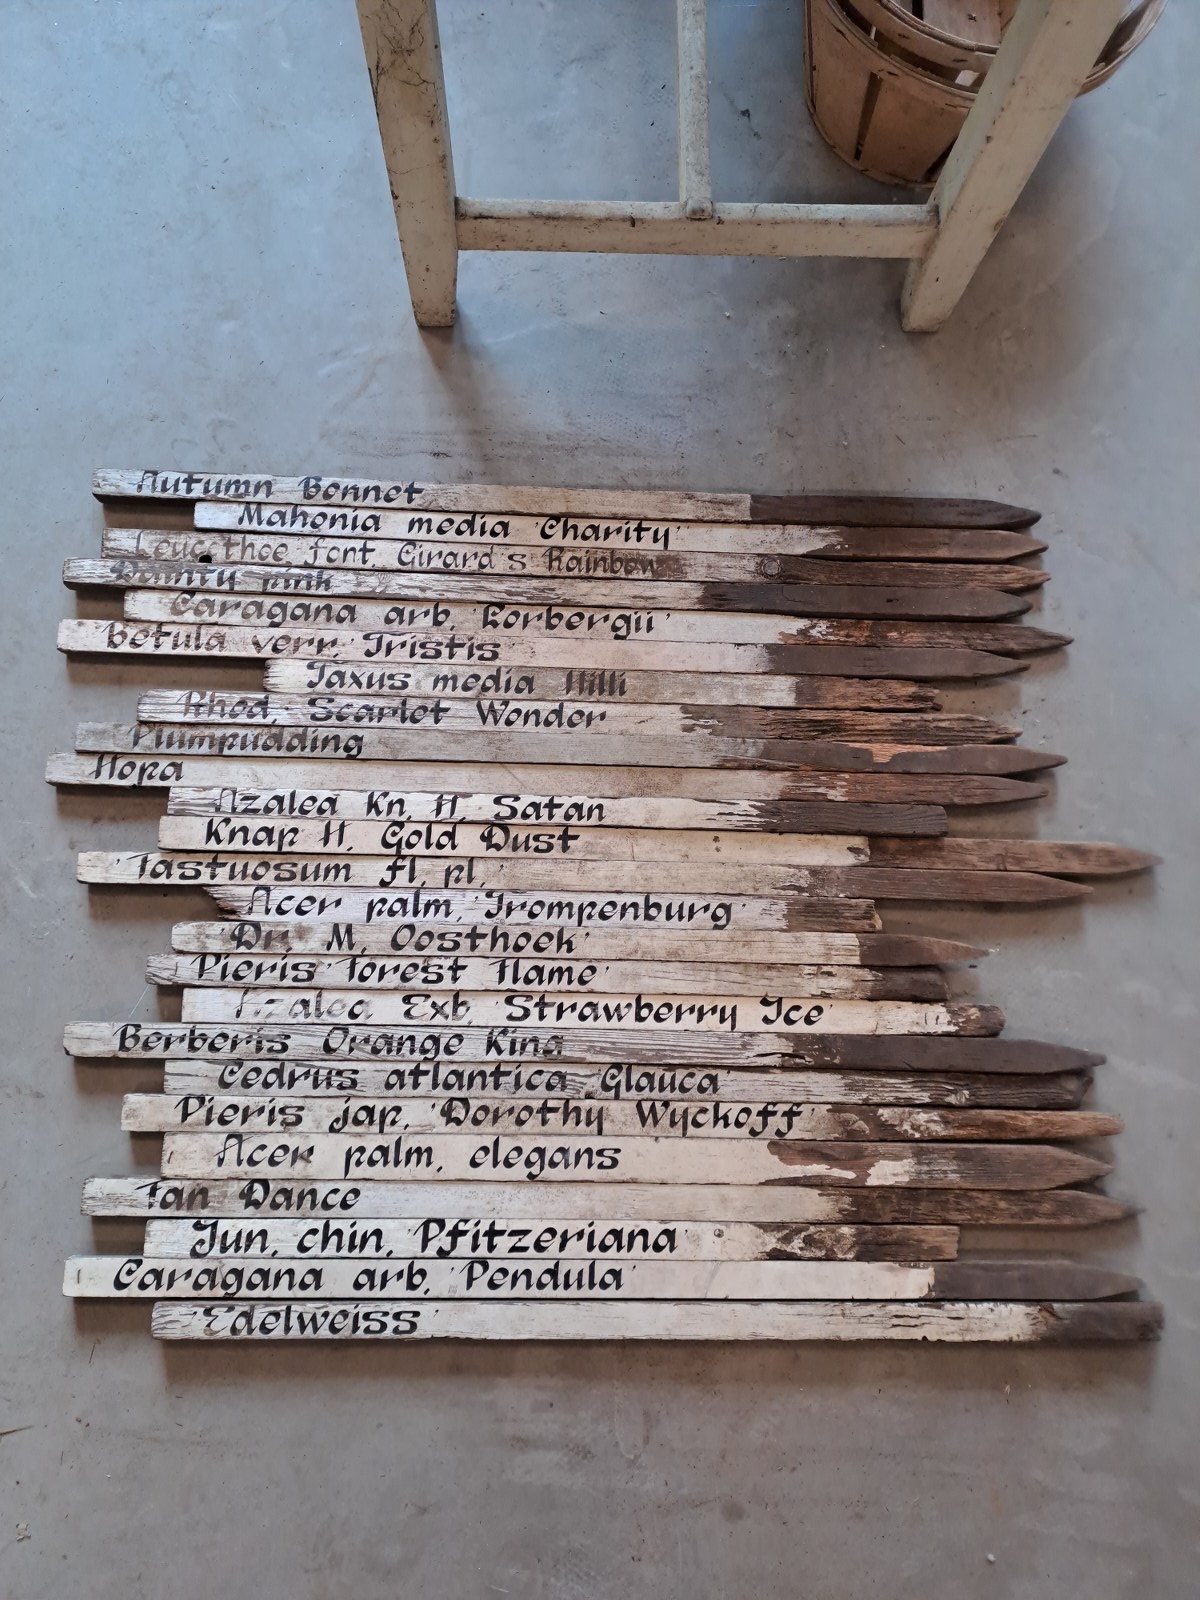 Autumn Bonnet
Mahonia media 'Charity'
Leucothoe font. Girard's Rainbow
Dainty pink
Caragana arb. 'Lorbergii'
Betula verr. 'Tristis
Taxus media Hilli
Rhod. Scarlet Wonder
Plumpudding
Hopa
Azalea Kn. H. Satan
Knap H. Gold Dust
'Fastuosum fl. pl.'
Acer palm. 'Trompenburg'
'Dr. M. Oosthoek'
Pieris 'Forest Flame'
Azalea Exb. Strawberry Ice'
Berberis Orange King
Cedrus atlantica 'Glauca'
Pieris jap. 'Dorothy Wyckoff'
Acer palm. elegans
Fan Dance
Jun. chin. Pfitzeriana
Caragana arb. 'Pendula'
'Edelweiss'